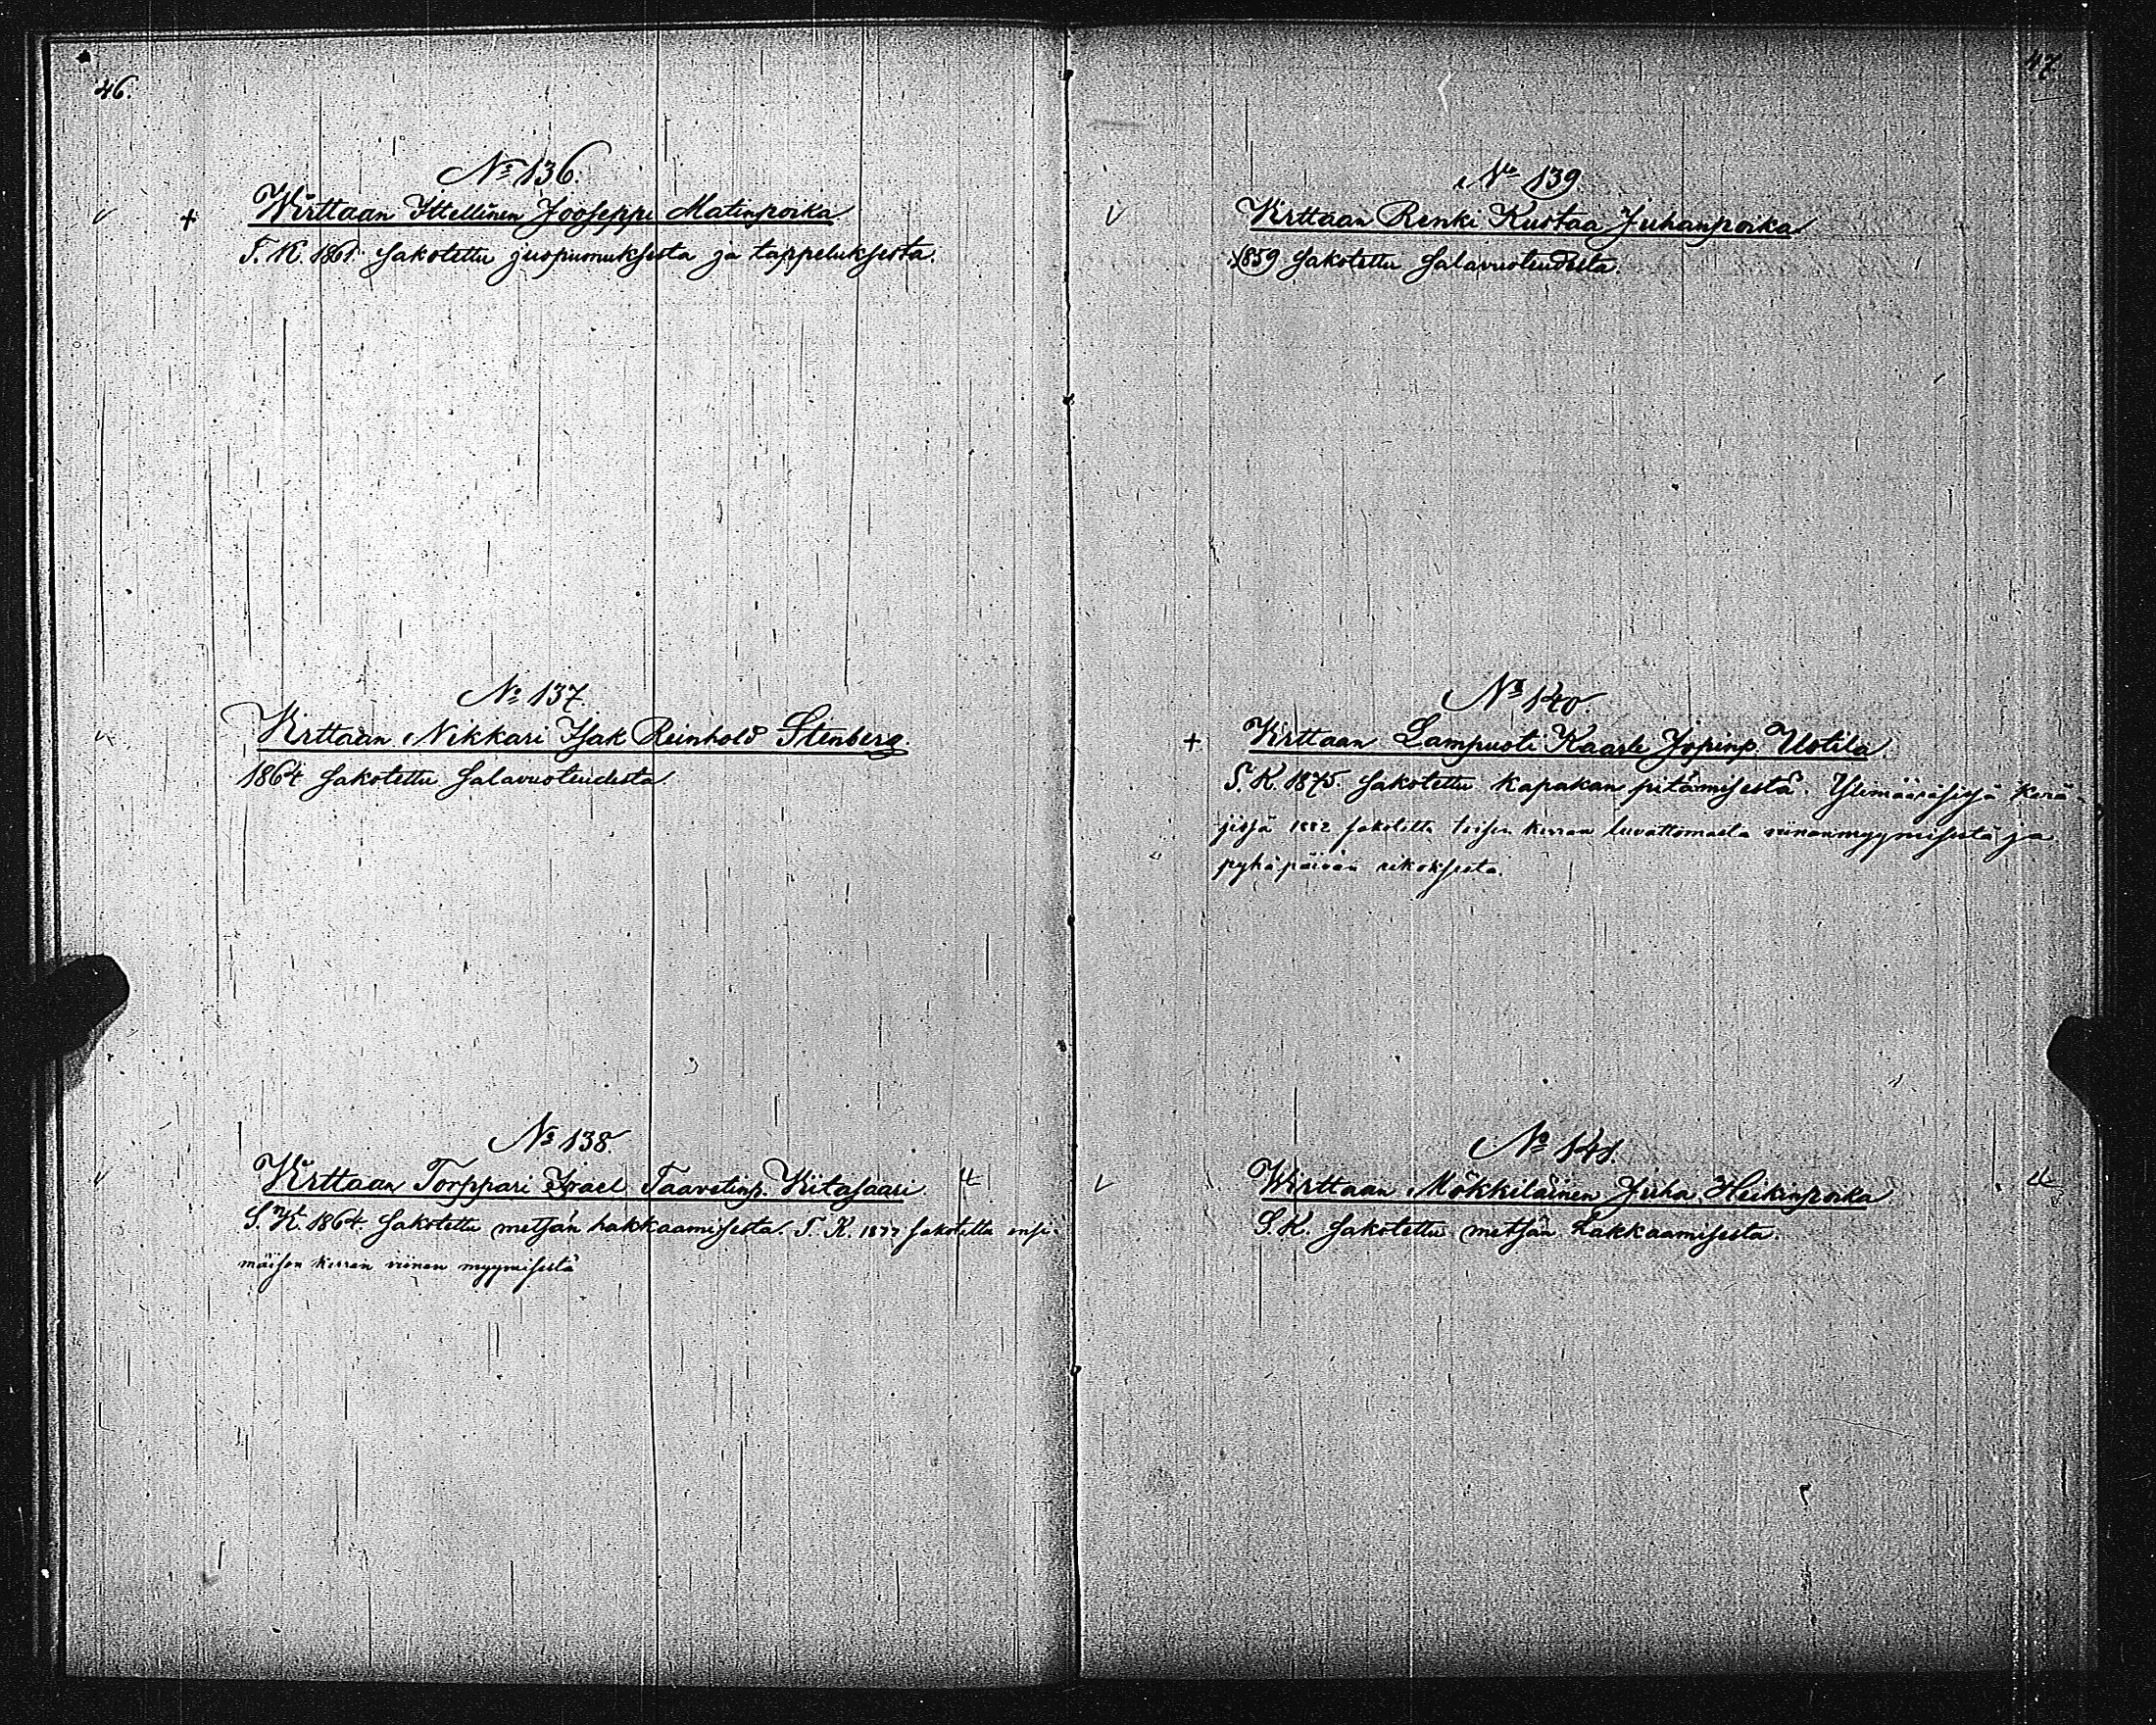 46.
No 136.
Wirttaan Ittellinen Jooseppi Matinpoika
T. K. 1861. sakotettu juopumuksesta ja tappeluksesta.
No 137.
Wirttaan Nikkari Isak Reinhold Stenberg
1864 sakotettu salavuoteudesta.
No 138.
Wirttaan Torppari Israel Taavetinp. Kiitasaari
S. K. 1864 sakotettu metsän hakkaamisesta. T. K. 1877 sakotettu ensi-
mäisen kerran viinan myymisestä
47
No 139.
Wirttaan Renki Kustaa Juhanpoika
1859 sakotettu salavuoteudesta.
No 140.
Wirttaan Lampuoti Kaarle Josinp. Uotila
S. K. 1875. sakotettu kapakan pitämisestä. Ylimääräsissä kärä-
jissä 1882 sakotettu toisen kerran luvattomasta viinanmyymisestä ja
pyhäpäivän rikoksesta.
No 141.
Wirttaan Mökkiläinen Juha Heikinpoika
S. K. sakotettu metsän hakkaamisesta.